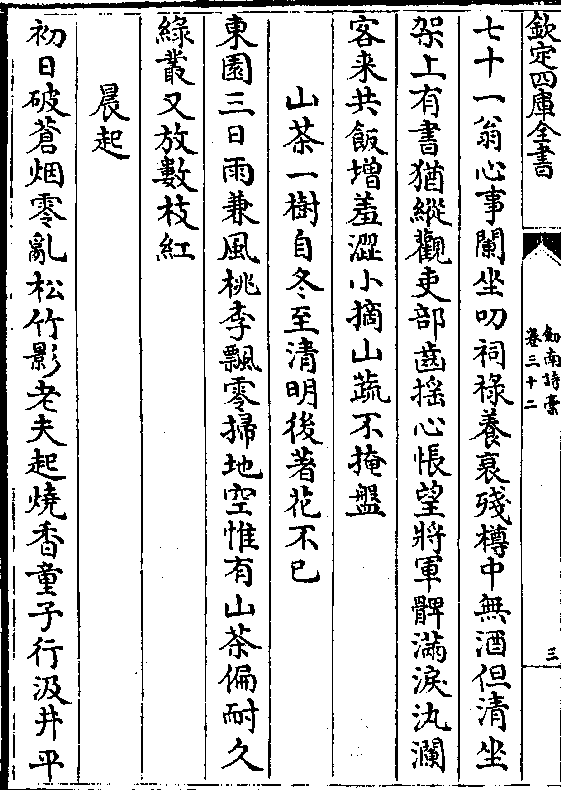 欽定四庫全書
劔南詩槀
卷三十二
三
七十一翁心事闌坐叨祠祿養衰殘樽中無酒但清坐
架上有書猶縱觀吏部齒揺心悵望將軍髀滿淚汍瀾
客来共飯增羞澀小摘山蔬不掩盤
山茶一樹自冬至清明後著花不已
東園三日雨兼風桃李飄零掃地空惟有山茶偏耐久
緑叢又放數枝紅
晨起
初日破蒼烟零亂松竹影老夫起燒香童子行汲井平